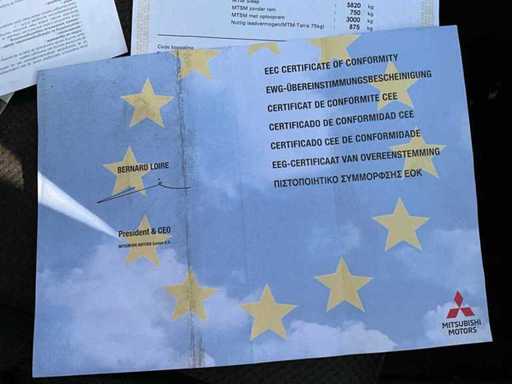 MTM Sleep 5820 kg
MTSM zonder rem 750 kg
MTSM met oplooprem 3000 kg
Nuttig laadvermogen(MTM-Tarra 75kg) 875 kg
Code koppeling
EEC CERTIFICATE OF CONFORMITY
EWG-ÜBEREINSTIMMUNGSBESCHEINIGUNG
CERTIFICAT DE CONFORMITE CEE
CERTIFICADO DE CONFORMIDAD CEE
CERTIFICADO CEE DE CONFORMIDADE
EEG-CERTIFICAAT VAN OVEREENSTEMMING
ΠΙΣΤΟΠΟΙΗΤΙΚΟ ΣΥΜΜΟΡΦΩΣΗΣ ΕΟΚ
BERNARD LOIRE
President & CEO
MITSUBISHI MOTORS Europe B.V.
MITSUBISHI
MOTORS